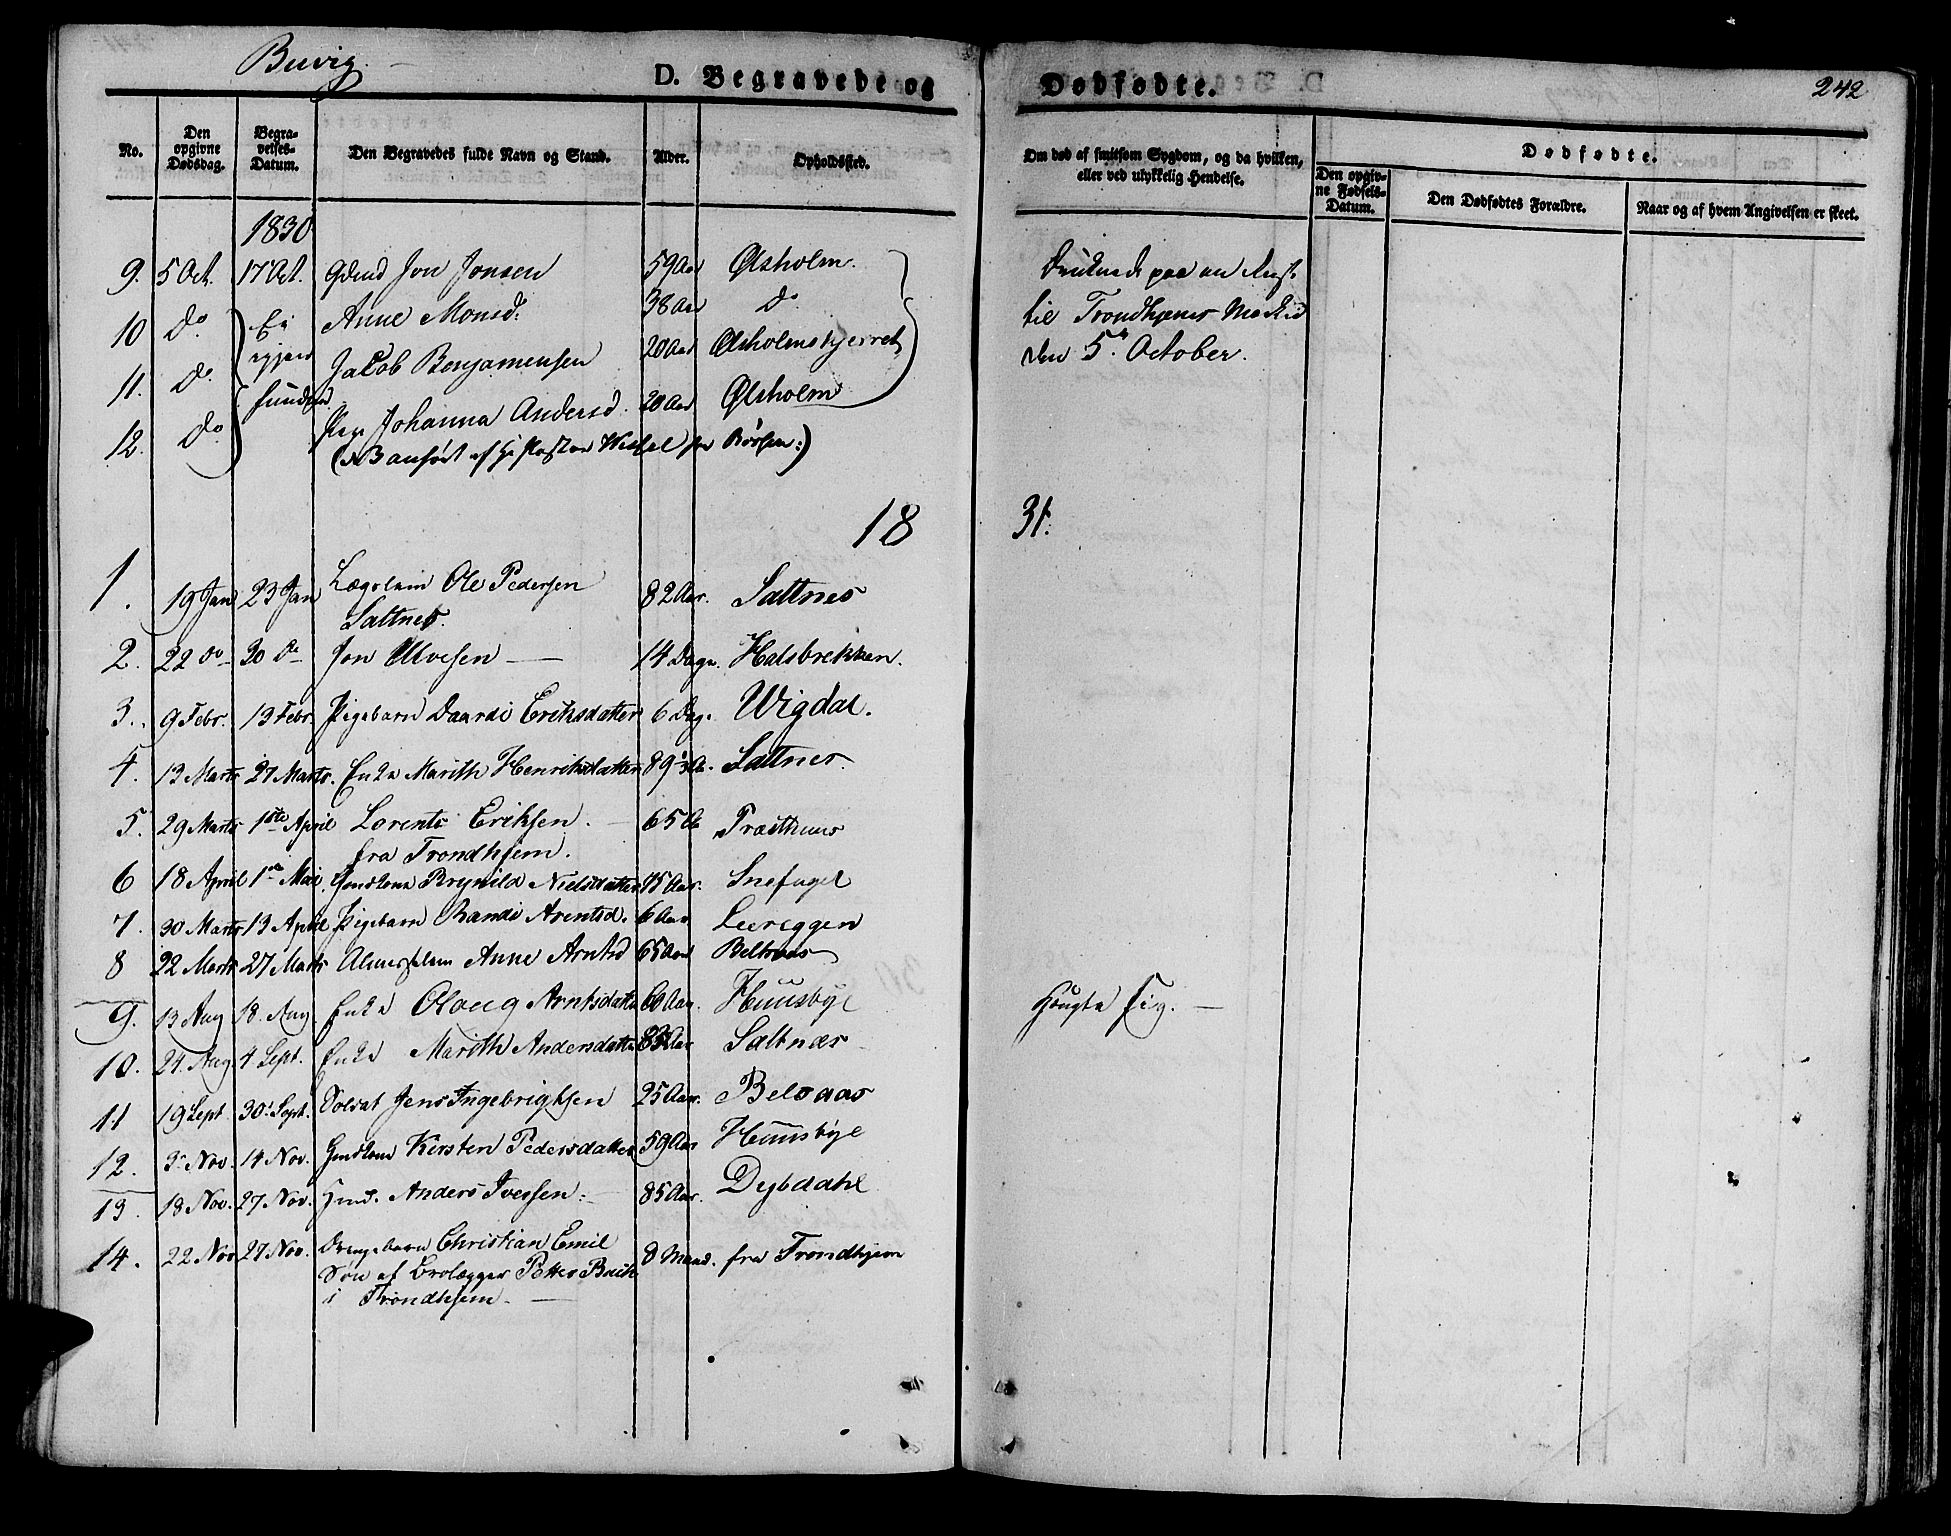 Buvig.
D. Begravede og Dødfødte.
242
No.
Den opgivne Dødsdag.
Begravelses-Datum.
Den Begravedes fulde Navn og Stand.
Alder.
Opholdssted.
Om død af smitsom Sygdom, og da hvilken, eller ved ulykkelig Hendelse.
Dødfødte.
Den opgivne Fødsels-Datum.
Den Dødfødtes Forældre.
Naar og af hvem Angivelsen er skeet.
1830
9. 5 Oct. 17 Oct. Gdmd Jon Jonsen 59 Aar Ølsholm. Druknede paa en Reise
10 Do. Ei Anne Monsd: 38 Aar Do til Trondhjems Marked
11. Do igjen Jacob Benjamensen 20 Aar Ølsholmskjerret den 5. October.
12. Do funden Pige Johanna Andersd. 20 Aar Ølsholm
(NB anført af Hr Pastor Wessel for Børsen:)
1831.
1. 19 Jan 23 Jan Lægdslem Ole Pedersen 82 Aar. Saltnes
Saltnes.
2. 22 do 30 Do Jon Ulvesen 14 Dage. Halsbrekken.
3. 9 Febr. 13 Febr. Pigebarn Daardi Eriksdatter 6 Dag. Wigdal.
4. 13 Marts 27 Marts. Enke Marith Henriksdatter 89 A. Saltnes.
5. 29 Marts 1ste April Lorents Eriksen. 65 A Præsthuus
fra Trondhjem.
6 18 April 1te Mai. Gmdkone Brynild Nielsdatter 75 Aar. Snefugel
7. 30 Marts 13 April Pigebarn Randi Arentsd. 6 Aar Leereggen
8 22 Marts 27 Marts Almisselem Anne Arntsd 65 Aar Belsaas
9. 13 Aug 18. Aug Enke Olaug Arntsdatter 60 Aar. Huusbye Hængte sig.
10. 24. Aug. 4 Sept. Enke Marith Andersdatter 83 Aar Saltnæs
11 19 Sept. 30. Sept. Soldat Jens Ingebrigtsen 25 Aar. Belsaas
12. 3. Nov. 14 Nov. Gmdkone Kirsten Pedersdatter 59 Aar Huusbye
13. 18 Nov. 27 Nov. Gmd. Anders Iversen. 85 Aar. Dybdahl
14. 22 Nov 27 Nov. Drengebarn Christian Emil 8 Maan. fra Trondhjem
Søn af Brolægger Petter Bach
i Trondhjem.